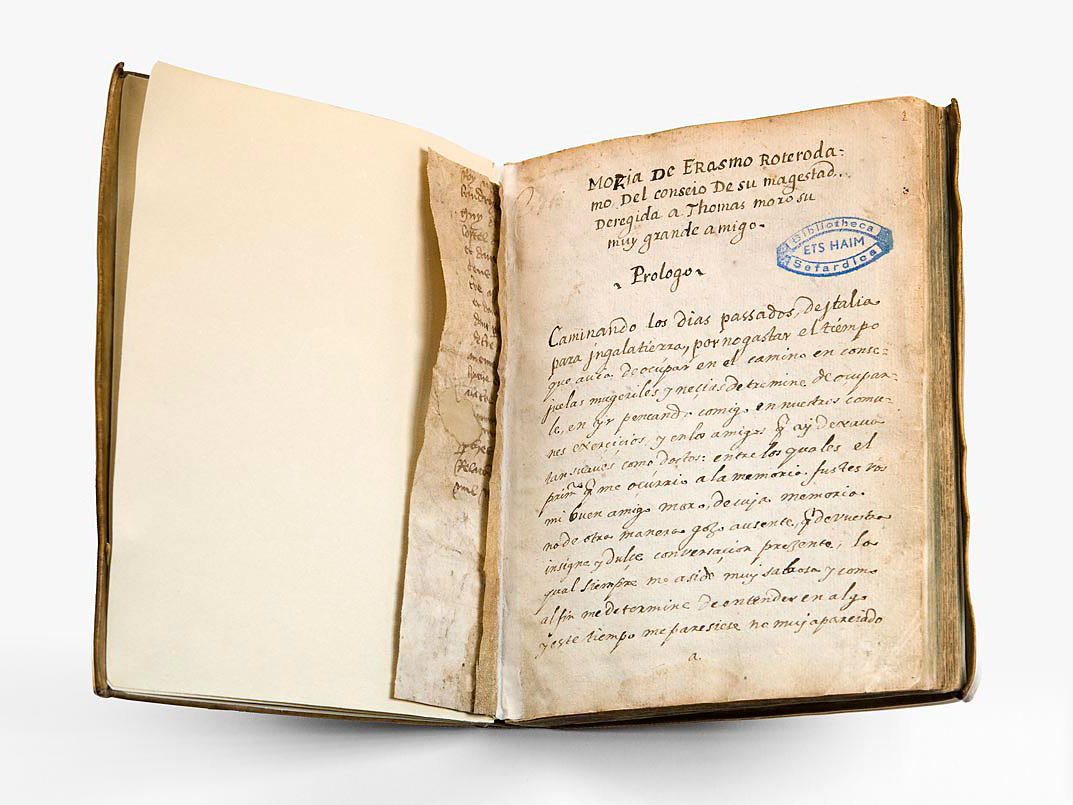 Moria De Erasmo Roteroda:
mo Del conseio De su magestad..
Deregida a Thomas moro su
muy grande amigo.
Bibliotheca
ETS HAIM
Sefardica
Prologo
Caminando los dias passados, de jtalia
para jngalatierra, por no gastar el tiempo
que auia de ocupar en el camino en conse:
juelas mugeriles y neçias determine de ocupar:
le, en yr pensando comigo en nuestros comu:
nes exerçiçios, y en los amigos q̃ ay dexaua
tan suaues como doctos: entre los quales el
prim.º q̃ me ocurrio a la memoria fustes vos
mi buen amigo moro, de cuja memoria
no de otra manera gozo ausente, q̃ de vuestra
insigne y dulçe conversaçion presente; la
qual siempre me a sido muy sabrosa y como
al fin me determine de entender en algo
y este tiempo me paresiese no muj aparejado
a.